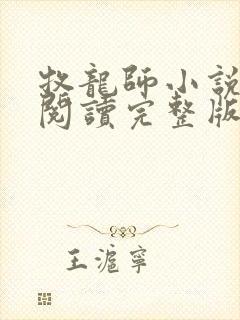 牧龍師小説
閱讀完整版
王滬寧